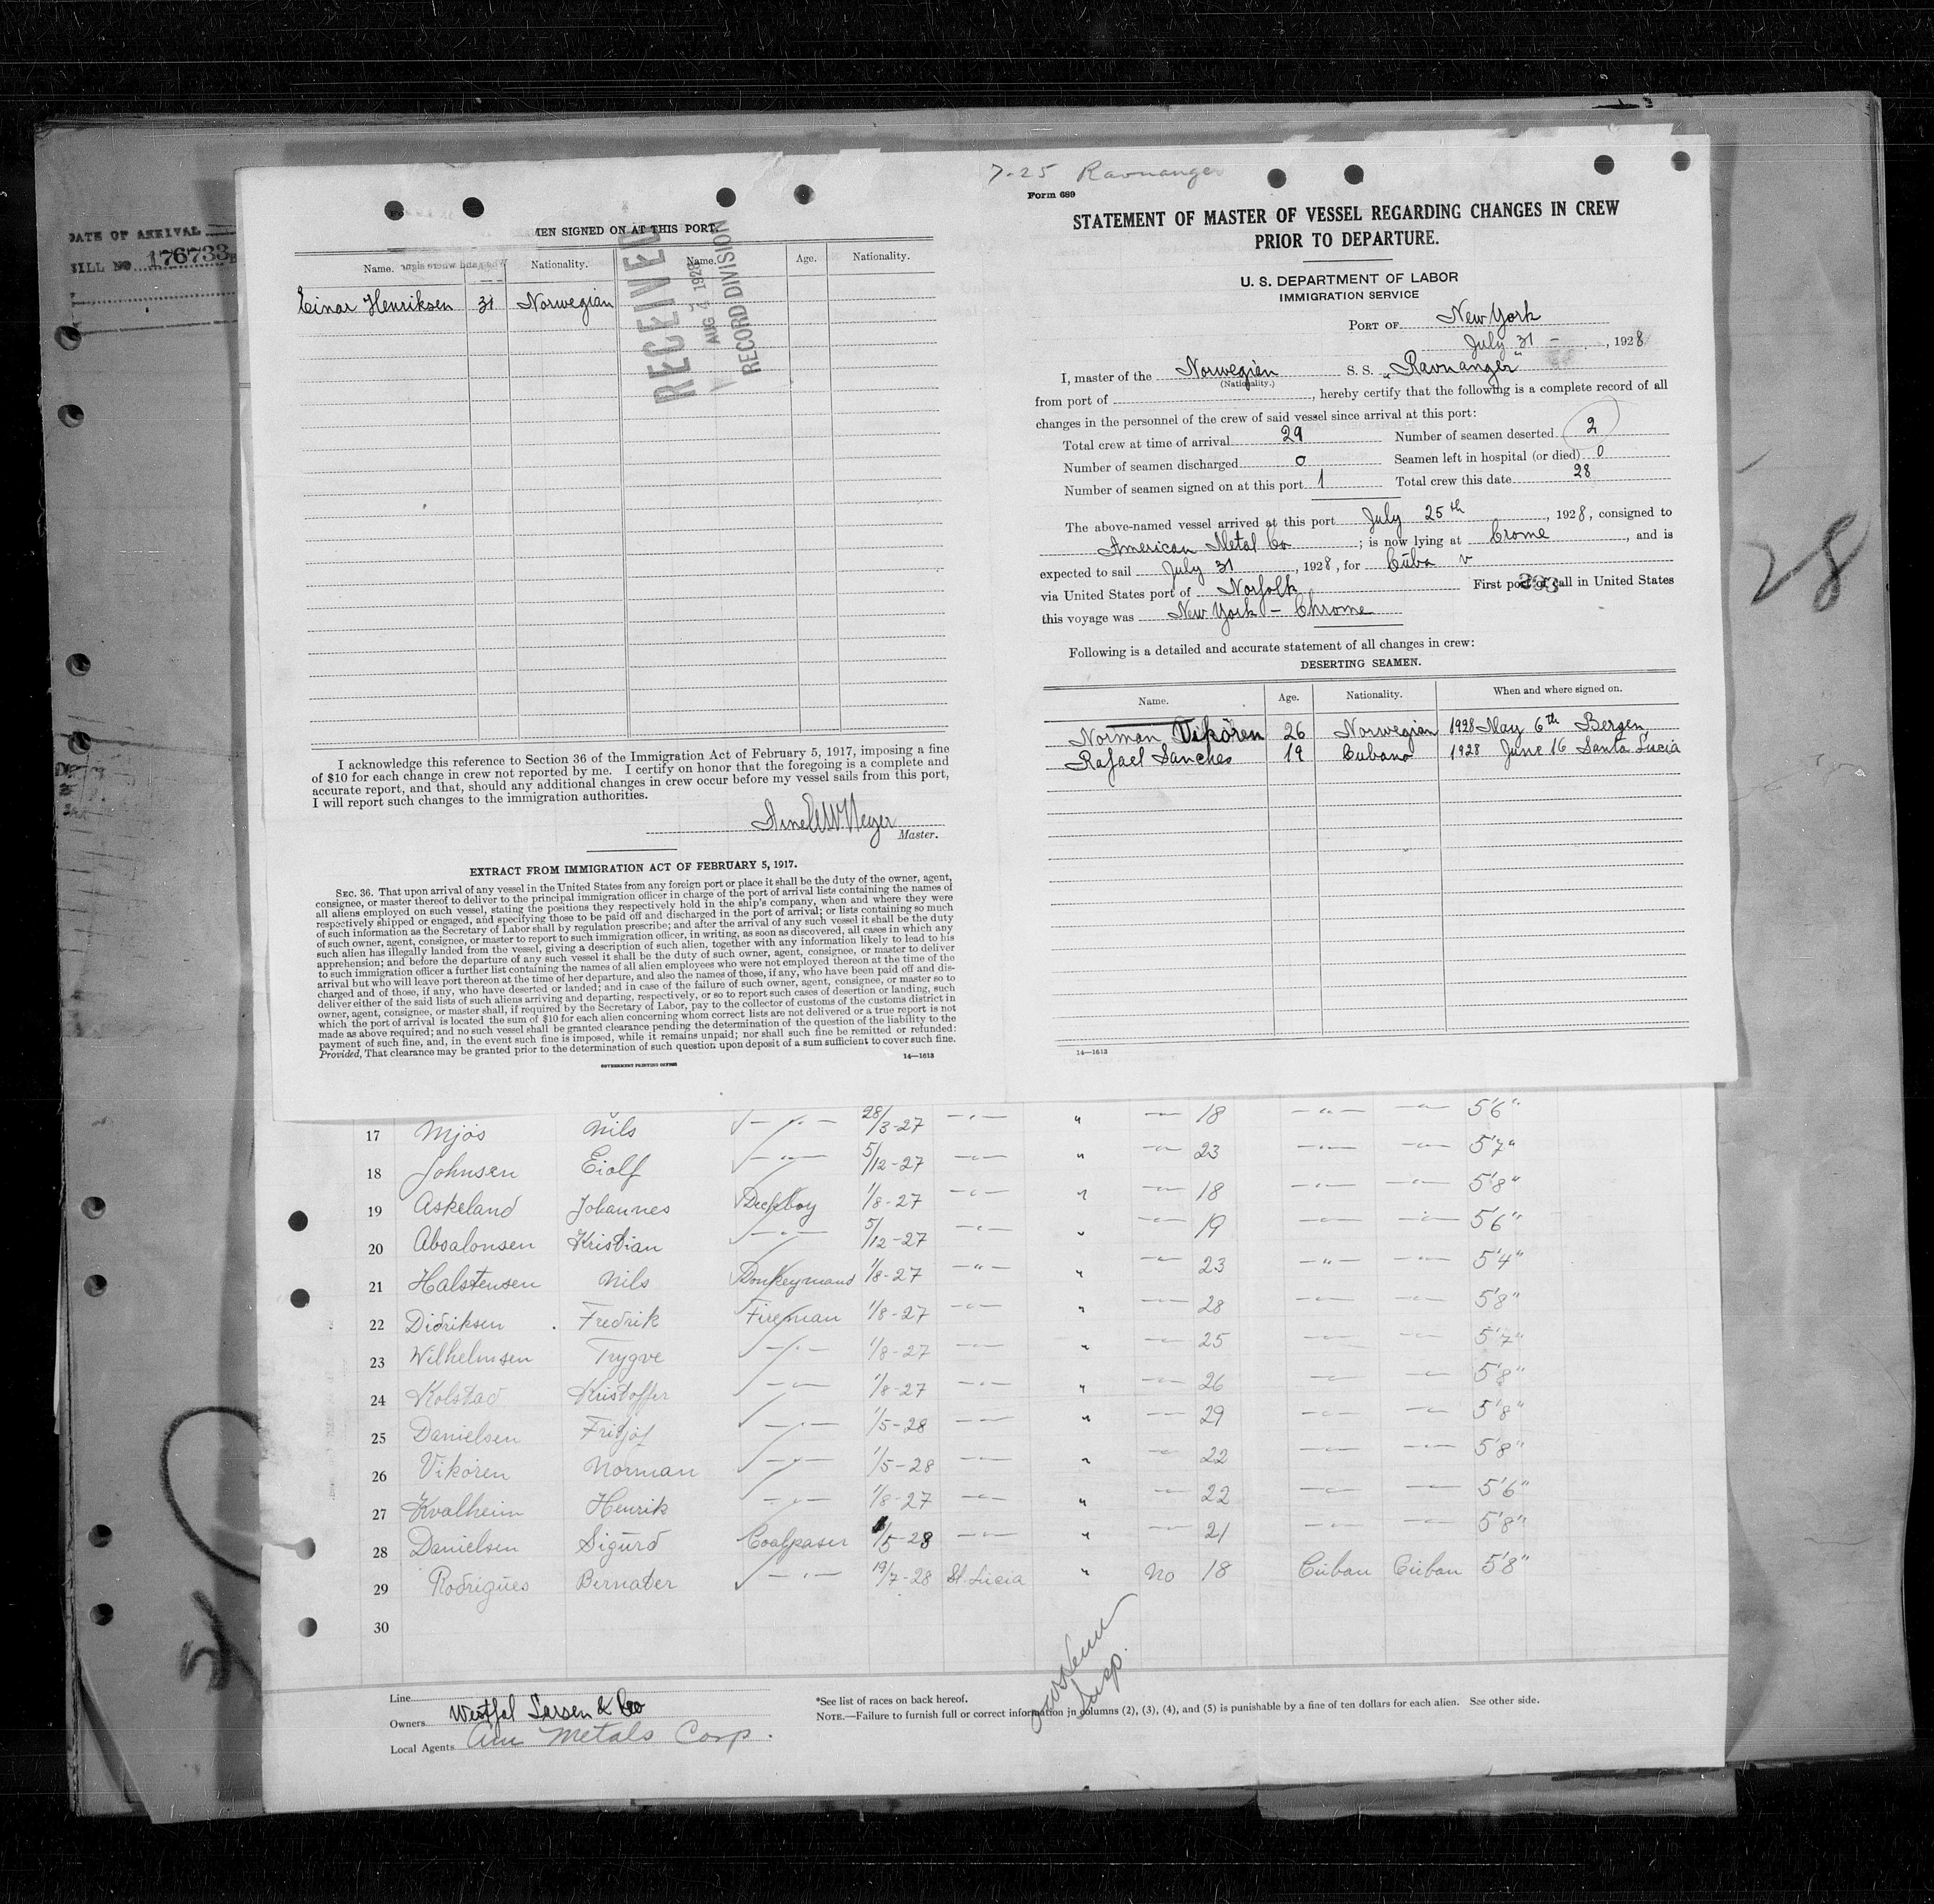 7-25 Ravnanger
DATE OF ARRIVAL
BILL NO 176733
MEN SIGNED ON AT THIS PORT.
Name. Nationality. Name. Age. Nationality.
Einar Henriksen 31 Norwegian
RECEIVED
AUG 1928
RECORD DIVISION
I acknowledge this reference to Section 36 of the Immigration Act of February 5, 1917, imposing a fine
of $10 for each change in crew not reported by me. I certify on honor that the foregoing is a complete and
accurate report, and that, should any additional changes in crew occur before my vessel sails from this port,
I will report such changes to the immigration authorities.
Master.
EXTRACT FROM IMMIGRATION ACT OF FEBRUARY 5, 1917.
SEC. 36. That upon arrival of any vessel in the United States from any foreign port or place it shall be the duty of the owner, agent,
consignee, or master thereof to deliver to the principal immigration officer in charge of the port of arrival lists containing the names of
all aliens employed on such vessel, stating the positions they respectively hold in the ship's company, when and where they were
respectively shipped or engaged, and specifying those to be paid off and discharged in the port of arrival; or lists containing so much
of such information as the Secretary of Labor shall by regulation prescribe; and after the arrival of any such vessel it shall be the duty
of such owner, agent, consignee, or master to report to such immigration officer, in writing, as soon as discovered, all cases in which any
such alien has illegally landed from the vessel, giving a description of such alien, together with any information likely to lead to his
apprehension; and before the departure of any such vessel it shall be the duty of such owner, agent, consignee, or master to deliver
to such immigration officer a further list containing the names of all alien employees who were not employed thereon at the time of the
arrival but who will leave port thereon at the time of her departure, and also the names of those, if any, who have been paid off and dis-
charged and of those, if any, who have deserted or landed; and in case of the failure of such owner, agent, consignee, or master so to
deliver either of the said lists of such aliens arriving and departing, respectively, or so to report such cases of desertion or landing, such
owner, agent, consignee, or master shall, if required by the Secretary of Labor, pay to the collector of customs of the customs district in
which the port of arrival is located the sum of $10 for each alien concerning whom correct lists are not delivered or a true report is not
made as above required; and no such vessel shall be granted clearance pending the determination of the question of the liability to the
payment of such fine, and, in the event such fine is imposed, while it remains unpaid; nor shall such fine be remitted or refunded:
Provided, That clearance may be granted prior to the determination of such question upon deposit of a sum sufficient to cover such fine.
GOVERNMENT PRINTING OFFICE 14—1613
Form 689
STATEMENT OF MASTER OF VESSEL REGARDING CHANGES IN CREW
PRIOR TO DEPARTURE.
U. S. DEPARTMENT OF LABOR
IMMIGRATION SERVICE
PORT OF New York
July 31 - , 1928
I, master of the Norwegian S. S. „Ravnanger"
(Nationality.)
from port of , hereby certify that the following is a complete record of all
changes in the personnel of the crew of said vessel since arrival at this port:
Total crew at time of arrival 29 Number of seamen deserted 2
Number of seamen discharged 0 Seamen left in hospital (or died) 0
Number of seamen signed on at this port 1 Total crew this date 28
The above-named vessel arrived at this port July 25th , 1928, consigned to
American Metal Co ; is now lying at Crome , and is
expected to sail July 31 , 1928, for Cuba v
via United States port of Norfolk First port of call in United States
this voyage was New York - Chrome
Following is a detailed and accurate statement of all changes in crew:
DESERTING SEAMEN.
Name. Age. Nationality. When and where signed on.
Norman Vikören 26 Norwegian 1928 May 6th Bergen
Rafael Sanches 19 Cubano 1928 June 16 Santa Lucia
14—1613
28
17 Mjös Nils —„— 28/3-27 —„— " —„— 18 —„— —„— 5'6"
18 Johnsen Eiolf —„— 5/12-27 —„— " —„— 23 —„— —„— 5'7"
19 Askeland Johannes Deckboy 1/8-27 —„— " —„— 18 —„— —„— 5'8"
20 Absalonsen Kristian —„— 5/12-27 —„— " —„— 19 —„— —„— 5'6"
21 Halstensen Nils Donkeymand 1/8-27 —„— " —„— 23 —„— —„— 5'4"
22 Didriksen Fredrik Fireman 1/8-27 —„— " —„— 28 —„— —„— 5'8"
23 Wilhelmsen Trygve —„— 1/8-27 —„— " —„— 25 —„— —„— 5'7"
24 Kolstad Kristoffer —„— 1/8-27 —„— " —„— 26 —„— —„— 5'8"
25 Danielsen Fritjof —„— 1/5-28 —„— " —„— 29 —„— —„— 5'8"
26 Vikören Norman —„— 1/5-28 —„— " —„— 22 —„— —„— 5'8"
27 Kvalheim Henrik —„— 1/8-27 —„— " —„— 22 —„— —„— 5'6"
28 Danielsen Sigurd Coalpaser 1/5-28 —„— " —„— 21 —„— —„— 5'8"
29 Rodrigues Bernater —„— 19/7-28 St. Lucia " No 18 Cuban Cuban 5'8"
30
Insp.
Line
Owners Westfal Larsen & Co
Local Agents Am Metals Corp.
*See list of races on back hereof.
NOTE.—Failure to furnish full or correct information in columns (2), (3), (4), and (5) is punishable by a fine of ten dollars for each alien. See other side.